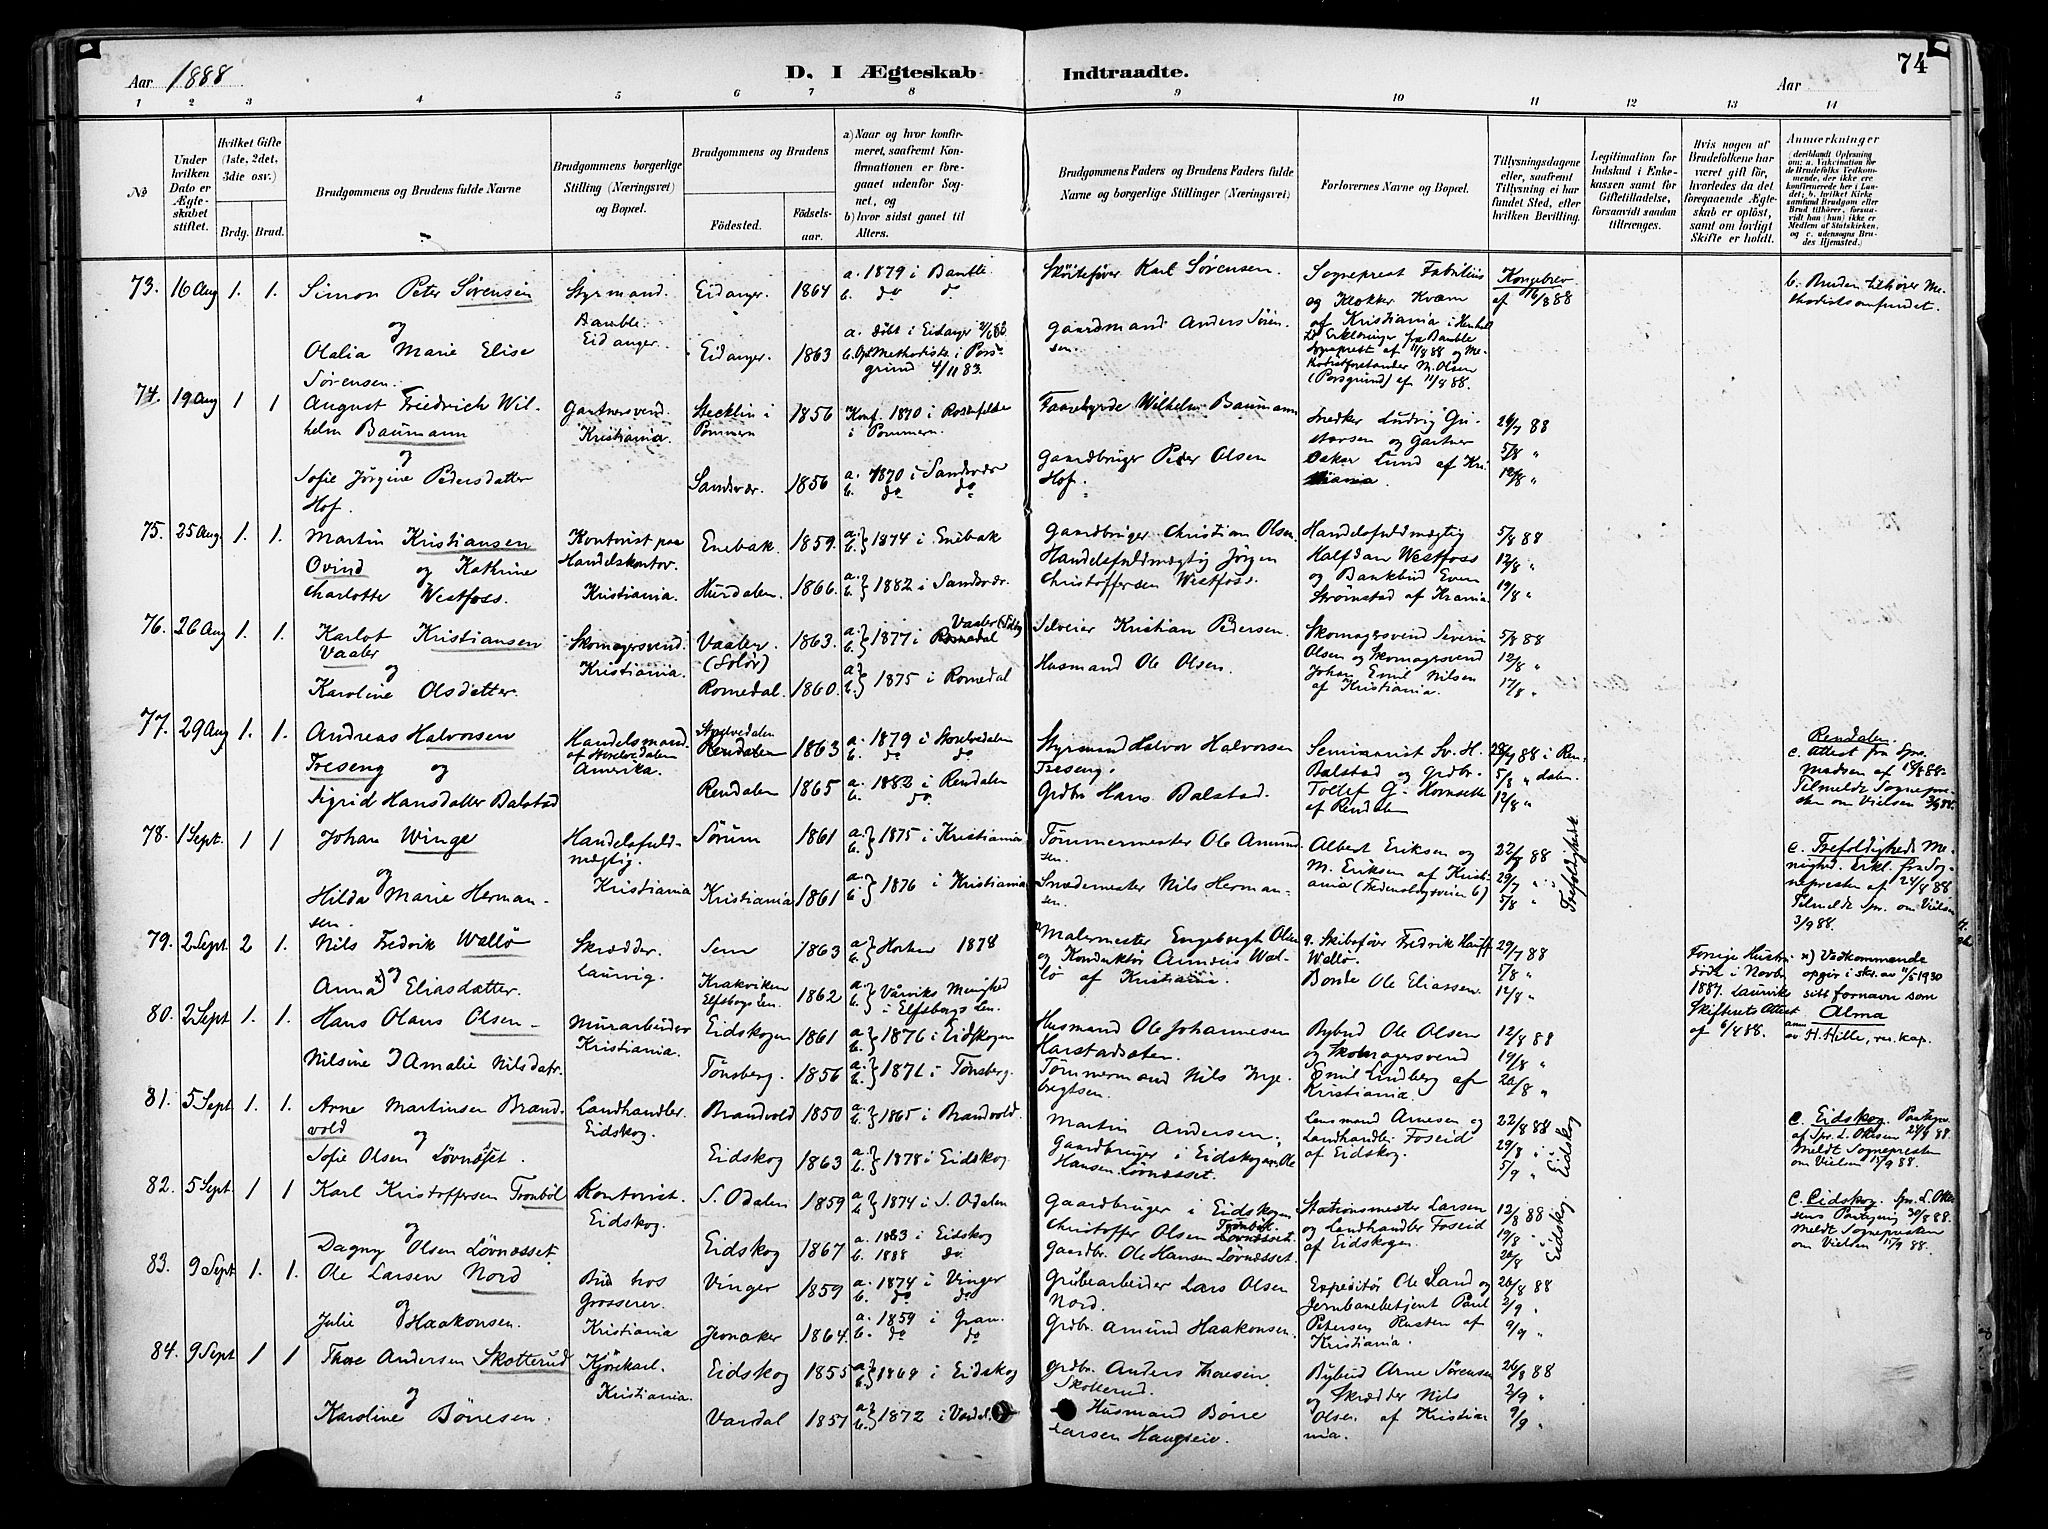 74
Aar 1888
D. I Ægteskab Indtraadte.
Aar
1 2 3 4 5 6 7 8 9 10 11 12 13 14
No
Under hvilken Dato er Ægteskabet stiftet.
Hvilket Gifte (1ste, 2det, 3die osv.)
Brdg. Brud.
Brudgommens og Brudens fulde Navne
Brudgommens borgerlige Stilling (Næringsvei) og Bopæl.
Brudgommens og Brudens
Fødested.
Fødselsaar.
a) Naar og hvor konfirmeret, saafremt Konfirmationen er foregaaet udenfor Sognet, og
b) hvor sidst gaaet til Alters.
Brudgommens Faders og Brudens Faders fulde Navne og borgerlige Stillinger (Næringsvei)
Forlovernes Navne og Bopæl.
Tillysningsdagene eller, saafremt Tillysning ei har fundet Sted, efter hvilken Bevilling.
Legitimation for Indskud i Enkekassen samt for Giftetilladelse, forsaavidt saadan tiltrænges.
Hvis nogen af Brudefolkene har været gift før, hvorledes da det foregaaende Ægteskab er opløst, samt om lovligt Skifte er holdt.
Anmerkninger
(deriblandt Oplysning om: a. Vakcination for de Brudefolks Vedkommende, der ikke ere konfirmerede her i Landet; b. hvilket Kirkesamfund Brudgom eller Brud tilhører, forsaavidt han (hun) ikke er Medlem af Statskirken, og c. udensogns Brudes Hjemsted.)
73. 16 Aug 1. 1. Simon Peter Sørensen
og
Olalia Marie Elise
Sørensen.
Styrmand.
Bamble.
Eidanger.
Eidanger. 1864 a. 1879 i Bamble
b. do do
Eidanger. 1863 a. døbt i Eidanger
Methodistk. i Porsgrund 4/11 83.
Skøitefører Karl Sørensen.
Gaardmand Anders Sørensen.
Sogneprest Fabritius
og Klokker Kværn
af Kristiania
Erklæringer fra Bamble
Sogneprest af 11/8 88 og Methodistforstander M. Olsen
(Porsgrund) af 11/8 88.
Kongebrev
af 16/8 88
b. Bruden tilhører Methodistsamfundet.
74. 19 Aug 1 1 August Friedrich Wilhelm Baumann
og
Sofie Jørgine Pedersdatter
Hof.
Gartnersvend.
Kristiania.
Stecklin i Pommern 1856 Konf. 1870 i Rosenfelde
i Pommern.
Sandsvær. 1856 a. 1870 i Sandsvær
b. do do
Faarehyrde Wilhelm Baumann
Gaardbruger Peder Olsen
Hof.
Snedker Ludvig Gustavsen og Gartner
Oskar Lund af Kristiania.
29/7 88
5/8 "
12/8 "
75. 25 Aug 1. 1. Martin Kristiansen
Ovind og Kathrine
Charlotte Westfoss.
Kontorist paa
Handelskontor.
Kristiania.
Enebak. 1859. a. b. 1874 i Enebak
Hurdalen. 1866. a. b. 1882 i Sandsvær.
Gaardbruger Christian Olsen
Handelsfuldmægtig Jørgen
Christoffersen Westfoss.
Handelsfuldmægtig
Halfdan Westfoss
og Bankbud Even
Strømstad af Krania.
5/8 88
12/8 "
19/8 "
76. 26 Aug 1. 1. Karlot Kristiansen
Vaaler
og
Karoline Olsdatter.
Skomagersvend.
Kristiania.
Vaaler (Solør) 1863. a. b. 1877 i Vaaler (Solør)
Romedal
Romedal. 1860. a. b. 1875 i Romedal
Selveier Kristian Pedersen.
Husmand Ole Olsen.
Skomagersvend Severin
Olsen og Skomagersvend
Johan Emil Nilsen
af Kristiania.
5/8 88
12/8 "
17/8 "
77. 29 Aug 1. 1. Andreas Halvorsen
Treseng og
Sigrid Hansdatter Balstad
Handelsmand.
af Storelvedalen
Amerika.
Storelvedalen
Rendalen 1863 a. 1879 i Storelvedalen
b. do do
Rendalen 1865 a. 1882 i Rendalen
b. do.
Styrmand Halvor Halvorsen
Treseng.
Grdbr. Hans Balstad.
Seminarist Sv. H.
Balstad og grdbr.
Tollef G. Hornsette
af Rendalen
29/7 88 i Rendalen.
5/8 "
12/8 "
Rendalen.
c. Attest fra Spr.
Madsen af 18/8 88.
Tilmeldt Sognepresten om Vielsen 3/9 88.
78. 1 Sept. 1 1 Johan Winge
og
Hilda Marie Hermansen.
Handelsfuldmægtig.
Kristiania
Sørum 1861 a. b. 1875 i Kristiania.
Kristiania 1861 a. b. 1876 i Kristiania
Tømmermester Ole Amundsen.
Snedkermester Nils Hermansen.
Albert Eriksen og
M. Eriksen af Kristiania
22/7 88
29/7 "
5/8 "
Trefoldighedsk.
c. Trefoldigheds Menighed. Erkl. fra Sognepresten af 24/8 88
Tilmeldt Spr. om Vielsen
3/9 88.
79. 2 Sept 2 1. Nils Fredrik Wallø
og
Anna x) Eliasdatter.
Skrædder.
Laurvig.
Sem 1863 a. b. Horten 1878
Krakviken
Elfsborgs Len. 1862 a. b. Vårviks Menighed
i Elfsborgs Len.
Malermester Engebregt Olsen
og Konduktør Anneus Wallø af Kristiania.
g. Skibsfører Fredrik Hauff
Wallø.
Bonde Ole Eliassen.
29/7 88
5/8 "
12/8 "
Forrige Hustru
døde i Novbr.
1887. Laurviks
Skifterets Attest
af 6/4 88.
x) Vedkommende
opgir i skr. av 11/5 1930
sitt fornavn som
Alma
anm. av H. Hille, res. kap.
80. 2 Sept 1. 1. Hans Olaus Olsen
og
Nilsine Amalie Nilsdatr.
Murarbeider
Kristiania.
Eidskogen 1861 a. b. 1876 i Eidskogen
Tønsberg. 1856 a. b. 1871 i Tønsberg.
Husmand Ole Johannesen
Harstadsæten.
Tømmermand Nils Ingebregtsen.
Bybud Ole Olsen
og Skomagersvend
Emil Lindberg af
Kristiania.
12/8 88
19/8 "
26/8 "
81. 5 Sept 1. 1. Arne Martinsen Brandvold
og
Sofie Olsen Løvnæset.
Landhandler.
Eidskog.
Brandvold 1850 a. b. 1865 i Brandvold.
Eidskog 1863 a. b. 1878 i Eidskog.
Martin Andersen,
Gaardbruger i Eidskogen Ole
Hansen Løvnæsset.
Lensmand Arnesen og
Landhandler Foseid
af Eidskog.
22/8 88
29/8 "
5/9 "
i Eidskog
c. Eidskog. Pantegn.
af Spr. L. Ottesen 24/8 88.
Meldt Sognepresten
om Vielsen 15/9 88.
82. 5 Sept. 1 1 Karl Kristoffersen Tronbøl
og
Dagny Olsen Løvnæsset.
Kontorist.
Eidskog.
S. Odalen 1859 a. b. 1874 i S. Odalen
Eidskog 1867 a. 1883 i Eidskog
b. 1888 do.
Gaardbruger i Eidskogen
Christoffer Olsen Tronbøl.
Løvnæsset.
Gaardbr. Ole Hansen Løvnæsset.
Stationsmester Larsen
og Landhandler Foseid
af Eidskogen.
12/8 88
19/8 "
26/8
i Eidskog
c. Eidskog. Spr. L. Ottesens Pategning 30/8 88.
Meldt Sognepresten
om Vielsen 15/9 88.
83. 9 Sept 1. 1. Ole Larsen Nord
og
Julie Haakonsen.
Bud hos
Grosserer.
Kristiania
Vinger 1859 a. 1874 i Vinger
b. do do
Jevnaker 1864. a. 1859 i Gran.
b. do do
Grubearbeider Lars Olsen
Nord.
Grdbr. Amund Haakonsen.
Expeditør Ole Land og
Jernbanebetjent Paul
Petersen Rusten af
Kristiania.
26/8 88
2/9 "
9/9 "
84. 9 Sept 1 1 Thore Andersen Skotterud
og
Karoline Børresen.
Kjørekarl.
Kristiania.
Eidskog 1855 a. b. 1869 i Eidskog
Vardal 1857 a. b. 1872 i Vardal.
Grdbr. Anders Thoresen
Skotterud.
Husmand Børre
Larsen Haugseie.
Bybud Arne Sørensen
og Skrædder Nils
Olsen af Kristiania.
26/8 88
2/9 "
9/9 "